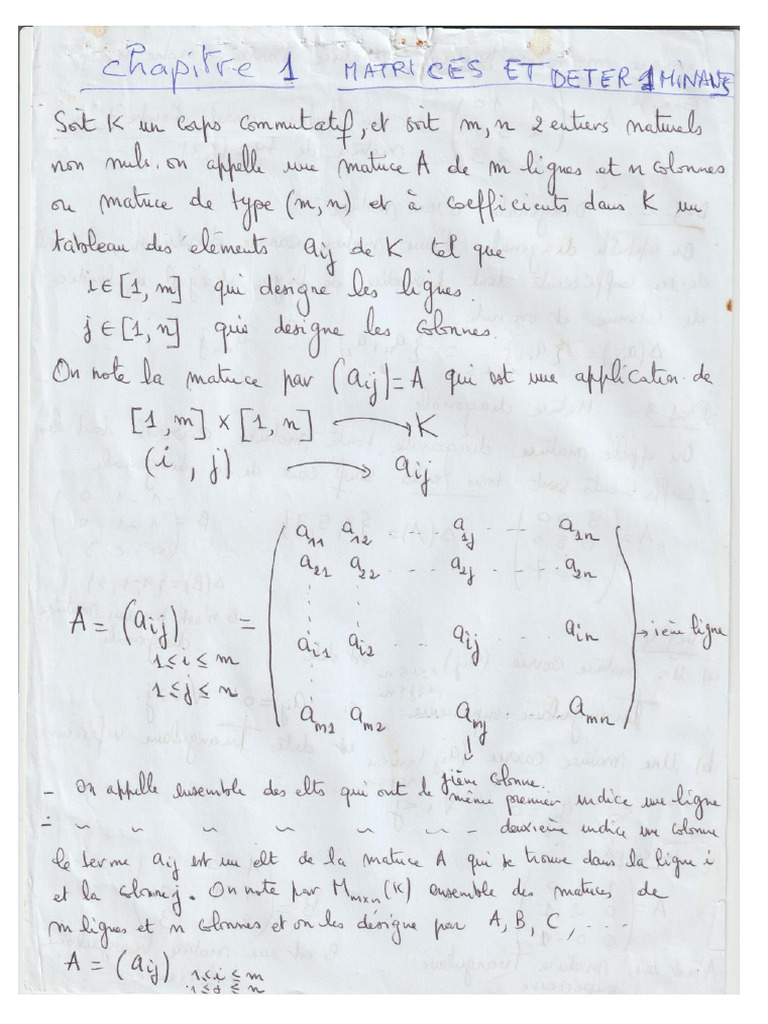 Chapitre 1 MATRICES ET DETERMINANTS
Soit K un corps commutatif, et soit m, n 2 entiers naturels
non nuls. on appelle une matrice A de m lignes et n colonnes
ou matrice de type (m, n) et à coefficients dans K un
tableau des elements aij de K tel que
i ∈ [1, m] qui designe les lignes.
j ∈ [1, n] qui designe les colonnes.
On note la matrice par (aij) = A qui est une application de
[1, m] × [1, n] → K
(i , j) → aij
a11 a12 . . - a1j . . - a1n
a21 a22 . . - a2j . . - a2n
A = (aij) =
ai1 ai2 . . aij . . ain → ième ligne
1 ≤ i ≤ m
1 ≤ j ≤ n
am1 am2 amj . . . amn
↓
jième colonne.
- On appelle ensemble des elts qui ont le même premier indice une ligne
- ~ ~ ~ ~ ~ ~ - deuxième indice une colonne
le terme aij est un elt de la matrice A qui se trouve dans la ligne i
et la colonne j. On note par Mm×n(K) ensemble des matrices de
m lignes et n colonnes et on les désigne par A, B, C, ...
A = (aij) 1 ≤ i ≤ m
1 ≤ j ≤ n